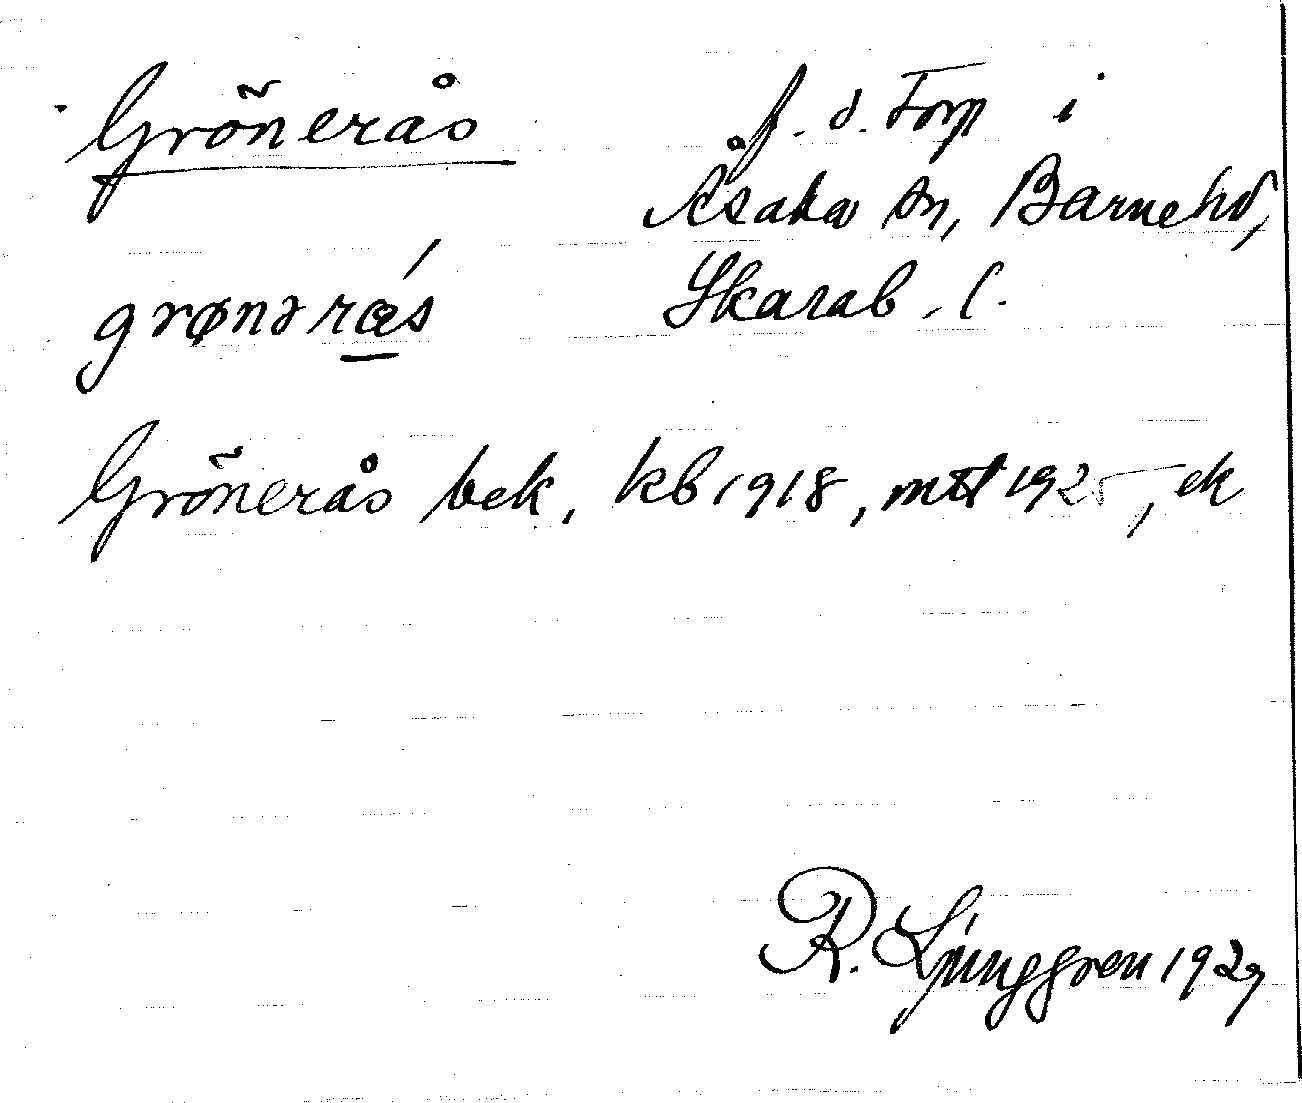 Grönerås
f. d. Torp i
Åsaka sn, Barnehd,
Skarab. l.
grønərås
Grönerås bek, kb 1918, mtl 1925, ek
R. Ljunggren 1929